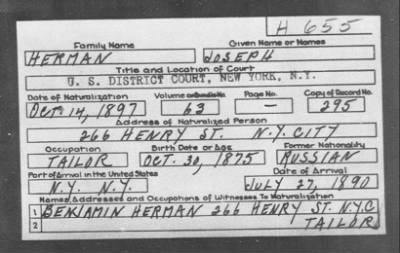 H 655
Family Name Given Name or Names
HERMAN JOSEPH
Title and Location of Court
U. S. DISTRICT COURT, NEW YORK, N.Y.
Date of Naturalization Volume or Bundle No. Page No. Copy of Record No.
OCT. 14, 1897 63 — 295
Address of Naturalized Person
266 HENRY ST. N.Y. CITY
Occupation Birth Date or Age Former Nationality
TAILOR OCT. 30, 1875 RUSSIAN
Port of Arrival in the United States Date of Arrival
N.Y. N.Y. JULY 27, 1890
Names, Addresses and Occupations of Witnesses To Naturalization
1 BENJAMIN HERMAN 266 HENRY ST. N.Y.C
2 TAILOR